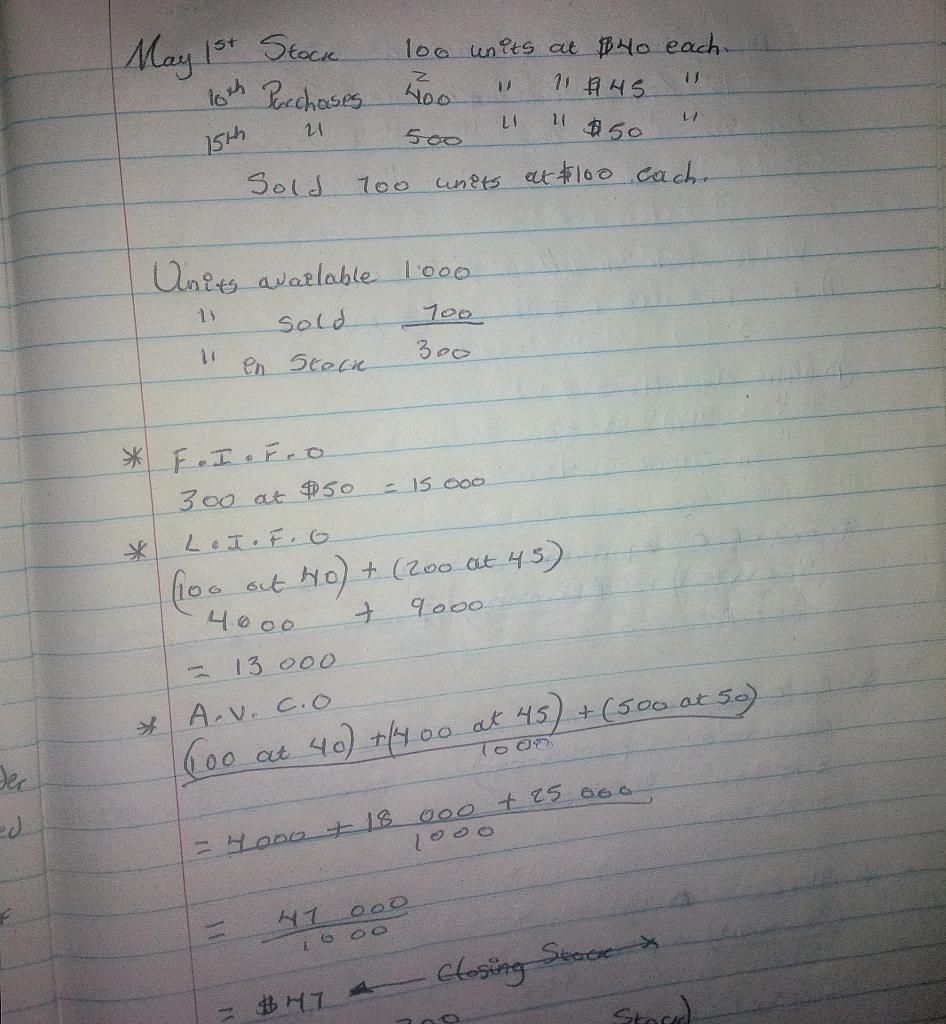 May 1st Stock 100 units at $40 each.
2
10th Purchases 400 " " $45 "
15th " 500 " " $50 "
Sold 700 units at $100 each.
Units available 1000
" sold 700
" in Stock 300
* F.I.F.O
300 at $50 = 15 000
* L.I.F.O
(100 at 40) + (200 at 45)
4000 + 9000
= 13 000
* A.V.C.O
(100 at 40) + (400 at 45) + (500 at 50)
1000
= 4000 + 18 000 + 25 000
1000
= 47 000
1000
= $47 ← Closing Stock *
300 Stock)